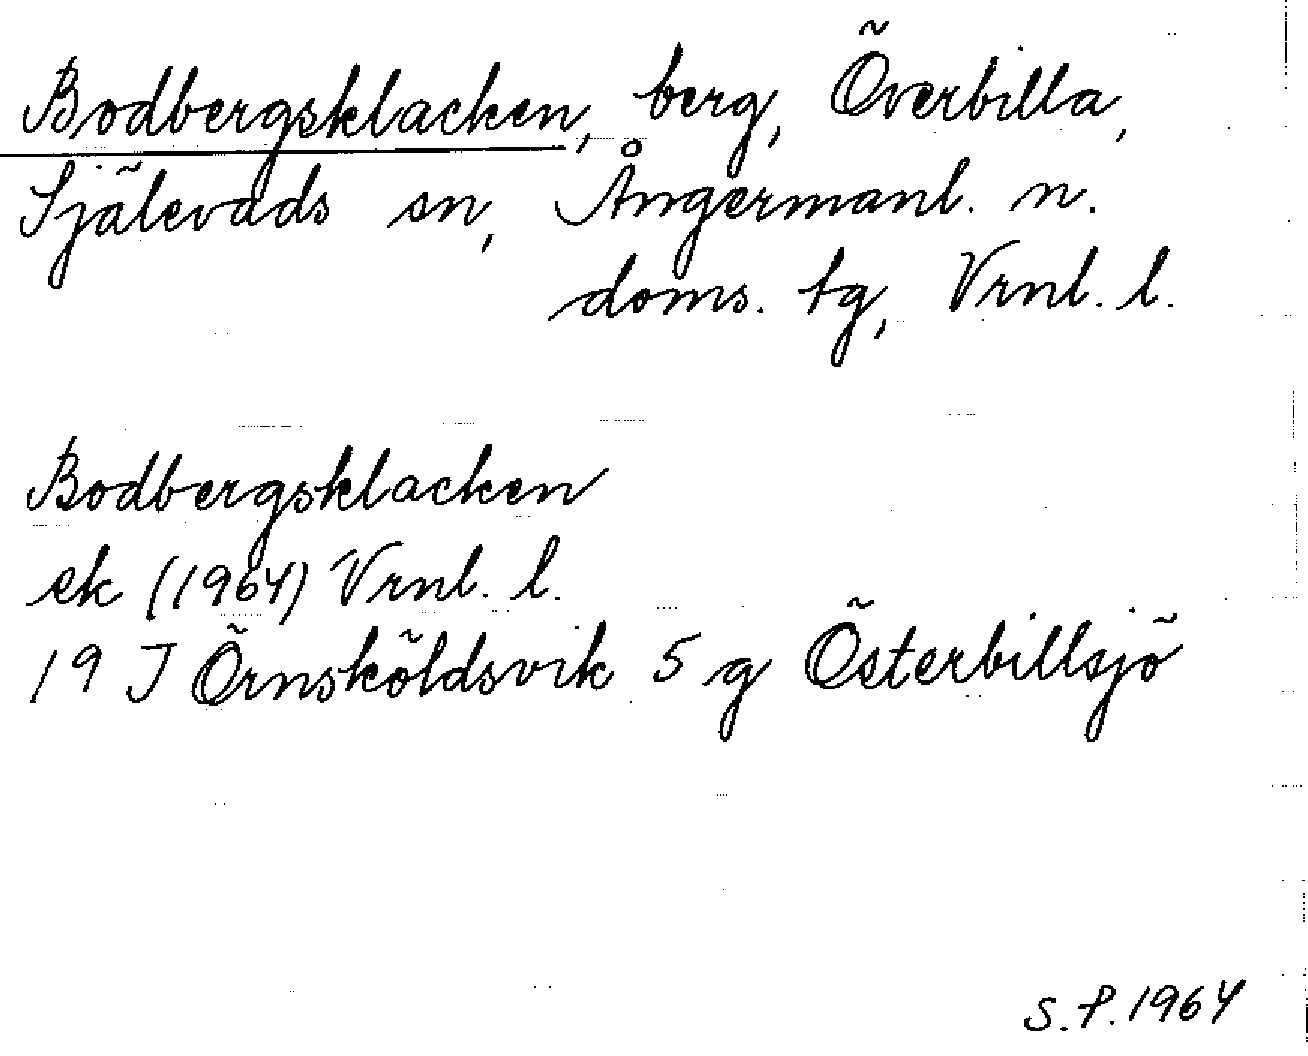 Bodbergsklacken, berg, Överbilla,
Själevads sn, Ångermanl. n.
doms. tg, Vrnl. l.
Bodbergsklacken
ek (1964) Vrnl. l.
19 J Örnsköldsvik 5 g Österbillsjö
S.P. 1964